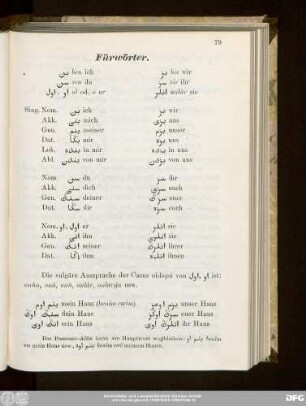 79
Fürwörter.
بن ben ich بز biz wir
سن sen du سز siz ihr
او، اول ol od. o er انلر anlar sie
Sing. Nom. بن ich بز wir
Akk. بنى mich بزى uns
Gen. بنم meiner بزم unser
Dat. بكا mir بزه uns
Lok. بنده in mir بزده in uns
Abl. بندن von mir بزدن von uns
Nom. سن du سز ihr
Akk. سنى dich سزى euch
Gen. سنك deiner سزك euer
Dat. سكا dir سزه euch
Nom. او، اول er انلر sie
Akk. انى ihn انلرى sie
Gen. انك seiner انلرك ihrer
Dat. اكا ihm انلره ihnen
Die vulgäre Aussprache der Casus obliqui von اول، او ist:
بنم اوم mein Haus (benim evim) بزم اومز unser Haus
سنك اوك dein Haus سزك اوكز euer Haus
انك اوى sein Haus انلرك اوى ihr Haus
Das Possessiv-Affix kann am Hauptwort wegbleiben: بنم او benim
ev mein Haus usw., بنم اوه benim eve meinem Hause.